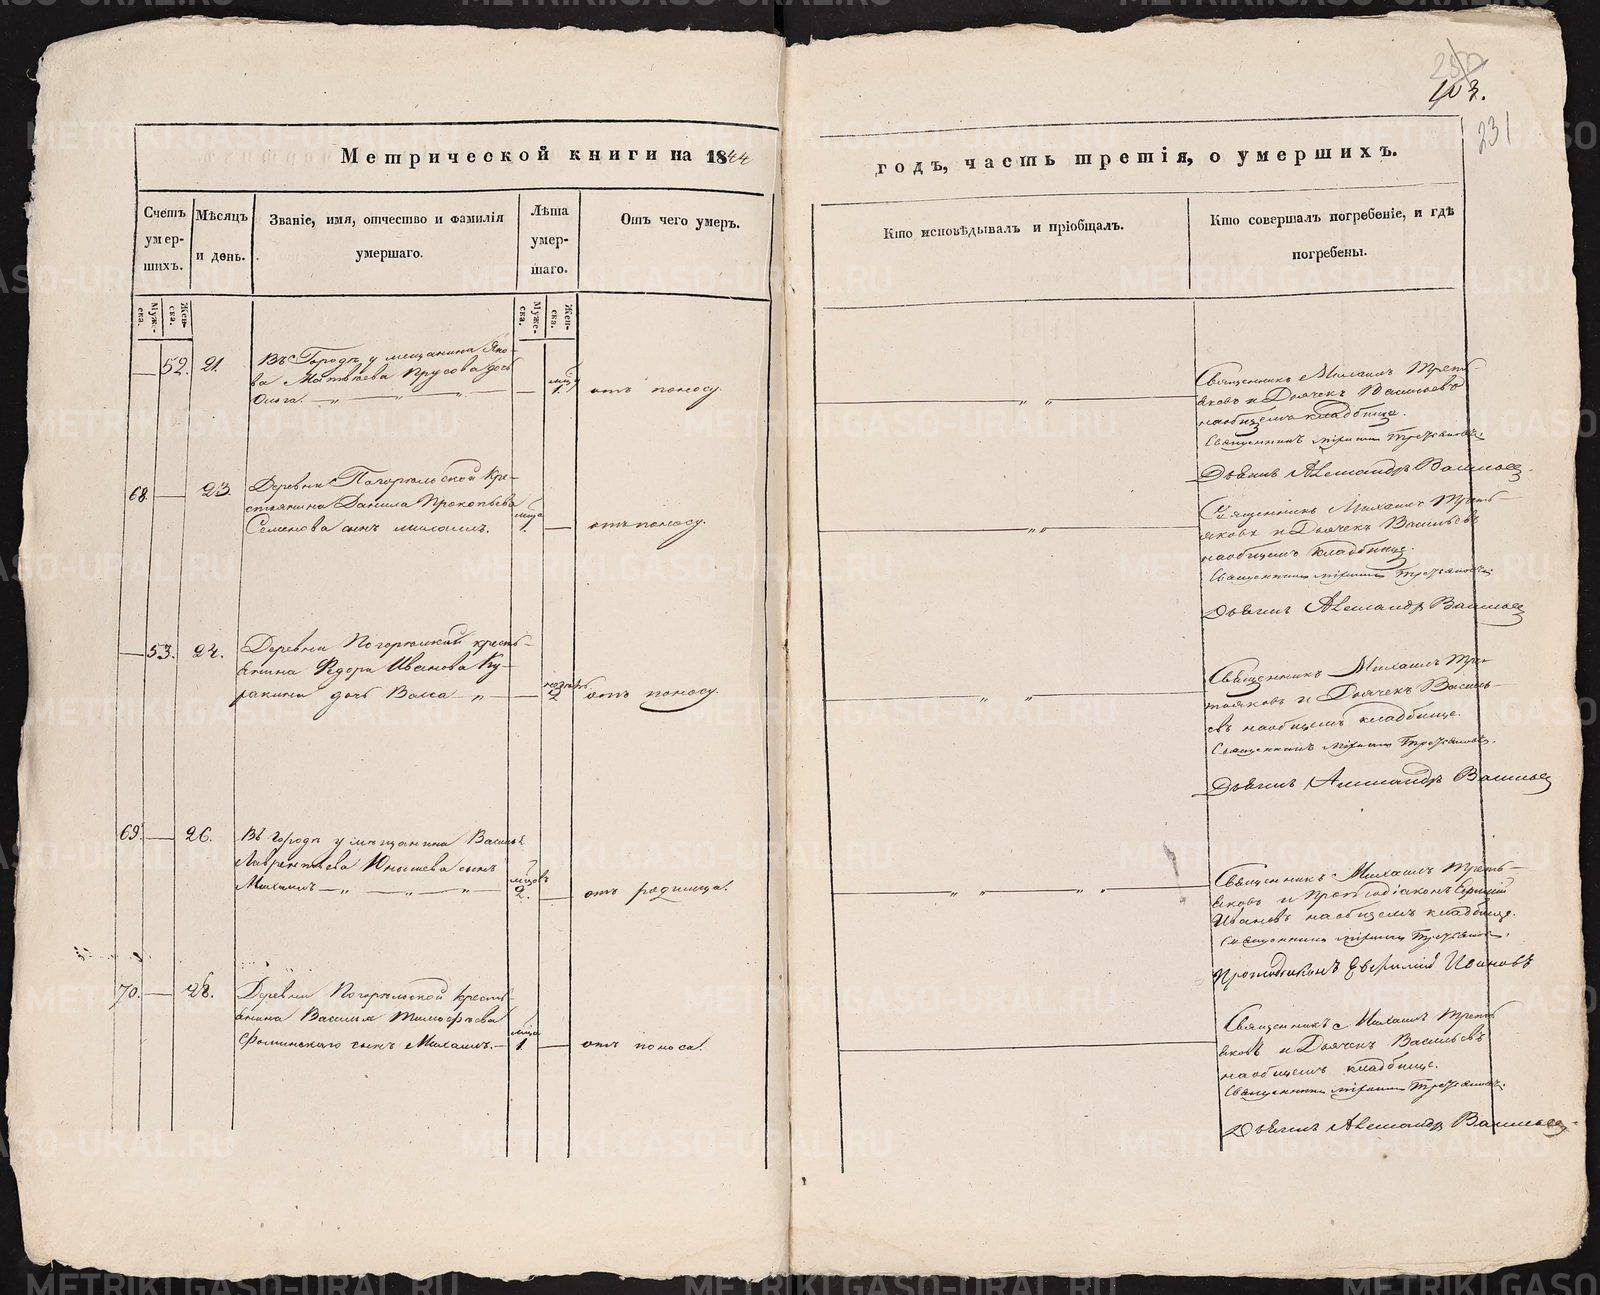 250
103.
231
Метрической книги на 1844
годъ, часть третія, о умершихъ.
Счетъ умер-шихъ.
Мѣсяцъ и день.
Званіе, имя, отчество и фамилія умершаго.
Лѣта умер-шаго.
Отъ чего умеръ.
Кто исповѣдывалъ и пріобщалъ.
Кто совершалъ погребеніе, и гдѣ погребены.
Муже-ска.
Жен-ска.
Муже-ска.
Жен-ска.
52. 21.
Въ Городѣ у мещанина Яко-
ва Матвѣева Прусова дочь
Ольга.
1.
отъ поносу.
Священникъ Михаилъ Треть-
яковъ и Дьячекъ Васильевъ
на общемъ кладбище.
Священникъ Михаилъ Третьяковъ.
Дьячекъ Александръ Васильевъ
68. 23.
Деревни Погорѣльской кре-
стьянина Данила Прокопьева
Семенова сынъ Михаилъ.
мѣца
1.
отъ поносу.
Священникъ Михаилъ Треть-
яковъ и Дьячекъ Васильевъ
на общемъ кладбище.
Священникъ Михаилъ Третьяковъ.
Дьячекъ Александръ Васильевъ
53. 24.
Деревни Погорѣльской кресть-
янина Ѳедора Иванова Ку-
ракина дочь Васса
2
отъ поносу.
Священникъ Михаилъ Тре-
тьяковъ и Дьячекъ Василь-
евъ на общемъ кладбище.
Священникъ Михаилъ Третьяковъ.
Дьячекъ Александръ Васильевъ
69. 26.
Въ городѣ у мѣщанина Василья
Лаврентьева сынъ
Михаилъ
мѣцовъ
2.
отъ родимца.
Священникъ Михаилъ Треть-
яковъ и Протодіаконъ Евфимій
Ивановъ на общемъ кладбище.
Священникъ Михаилъ Третьяковъ.
Протодіаконъ Евфимій Ивановъ
70. 28.
Деревни Погорѣльской кресть-
янина Василья Тимофѣева
Фоминскаго сынъ Михаилъ.
мѣца
1.
отъ поноса.
Священникъ Михаилъ Треть-
яковъ и Дьячекъ Васильевъ
на общемъ кладбище.
Священникъ Михаилъ Третьяковъ.
Дьячекъ Александръ Васильевъ
METRIKI.GASO-URAL.RU